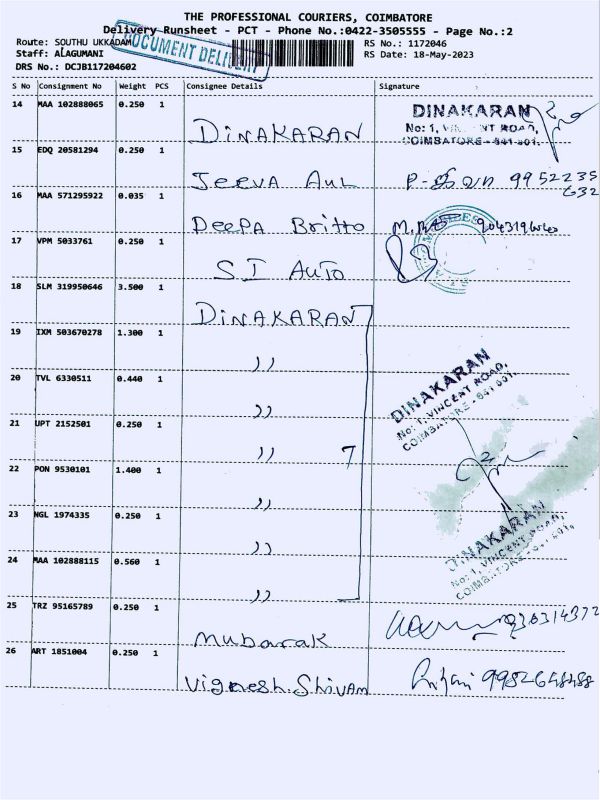 THE PROFESSIONAL COURIERS, COIMBATORE
Delivery Runsheet - PCT - Phone No.:0422-3505555 - Page No.:2
Route: SOUTHU UKKADAM
DOCUMENT DELIVERY
RS No.: 1172046
Staff: ALAGUMANI
RS Date: 18-May-2023
DRS No.: DCJB117204602
S No Consignment No Weight PCS Consignee Details Signature
14 MAA 102888065 0.250 1 DINAKARAN
DINAKARAN
No: 1, VINCENT ROAD,
COIMBATORE - 641 001.
15 EDQ 20581294 0.250 1 Jeeva Aul 9952235
632
16 MAA 571295922 0.035 1 Deepa Britto
17 VPM 5033761 0.250 1 SI Auto
18 SLM 319950646 3.500 1 DINAKARAN
19 IXM 503670278 1.300 1 ,,
20 TVL 6330511 0.440 1 ,,
DINAKARAN
No: 1, VINCENT ROAD,
COIMBATORE - 641 001.
21 UPT 2152501 0.250 1 ,, 7
22 PON 9530101 1.400 1 ,,
23 NGL 1974335 0.250 1 ,,
24 MAA 102888115 0.560 1 ,,
DINAKARAN
No: 1, VINCENT ROAD,
COIMBATORE - 641 001.
25 TRZ 95165789 0.250 1 Mubarak
26 ART 1851004 0.250 1 Vignesh Shivam